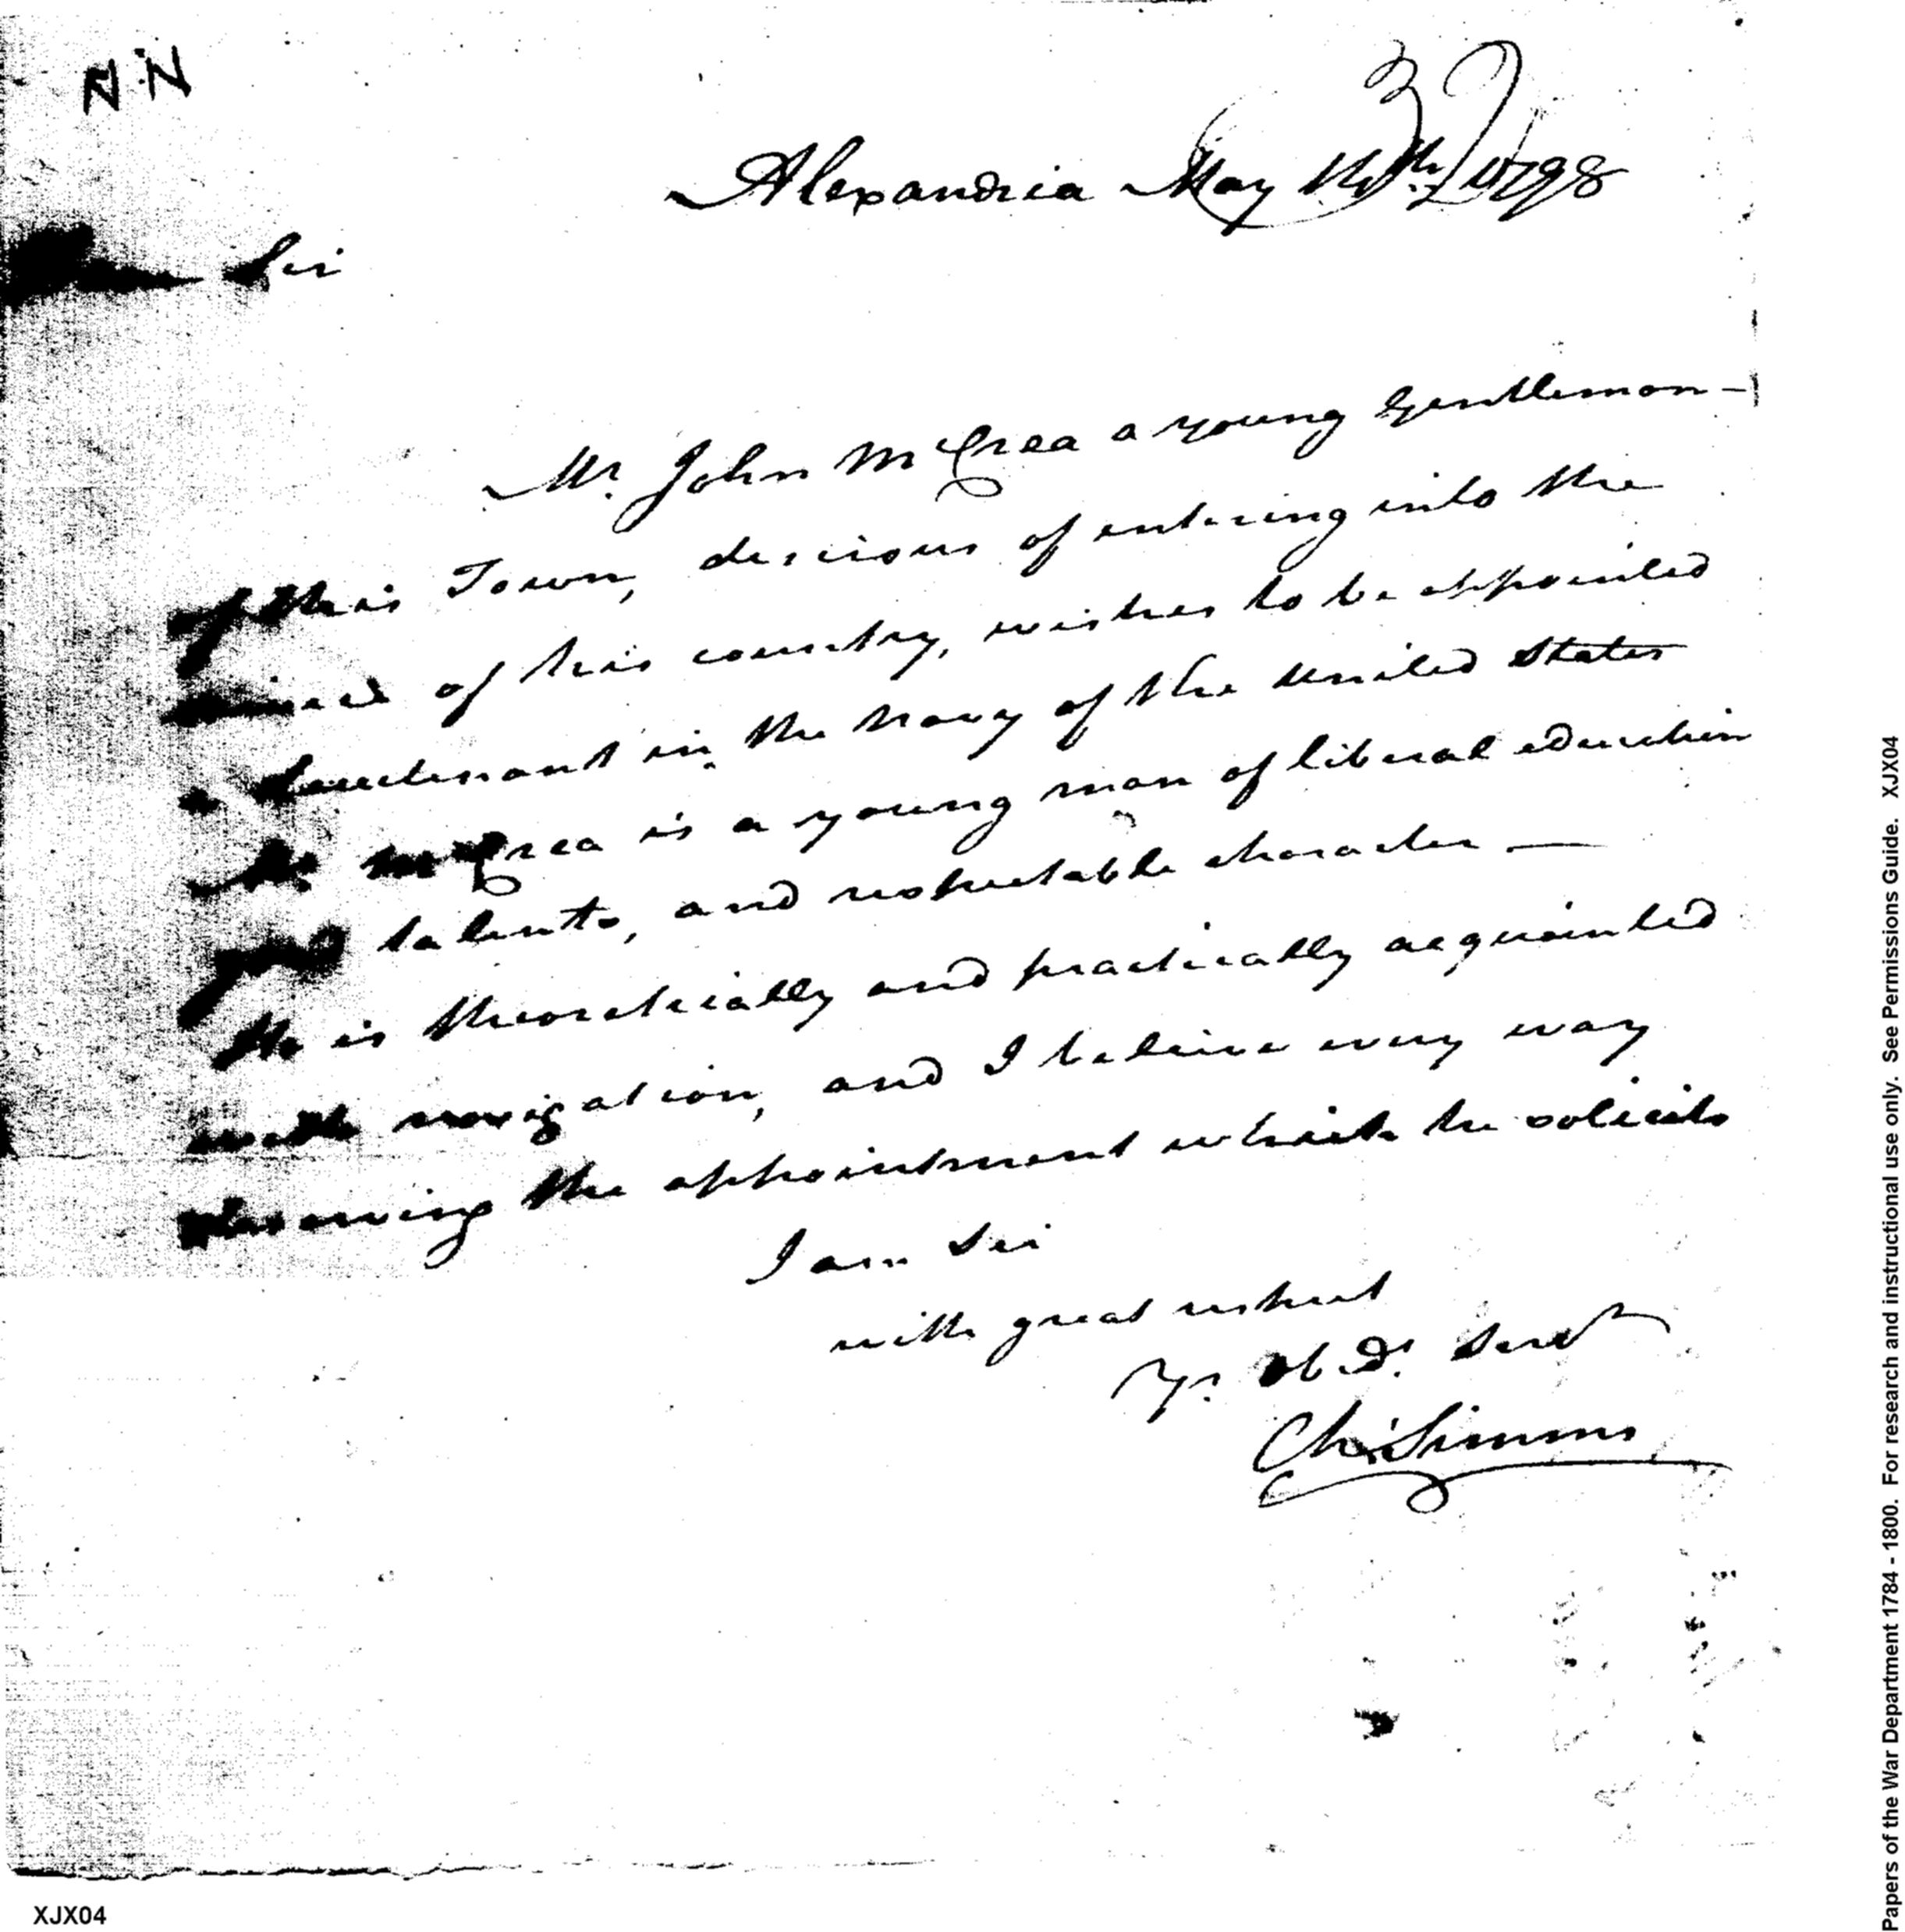 NN
Alexandria May 1798
Sir
Mr. John McCrea a young Gentleman —
of this Town, desirous of entering into the
of his country, wishes to be appointed
a Lieutenant in the Navy of the United States
Mr McCrea is a young man of liberal education
good talents, and respectable character —
He is theoretically and practically acquainted
with navigation, and I believe every way
deserving the appointment which he solicits
I am Sir
with great respect
Yr. Obdt. Servt
Chs Simms
XJX04
Papers of the War Department 1784 - 1800. For research and instructional use only. See Permissions Guide. XJX04